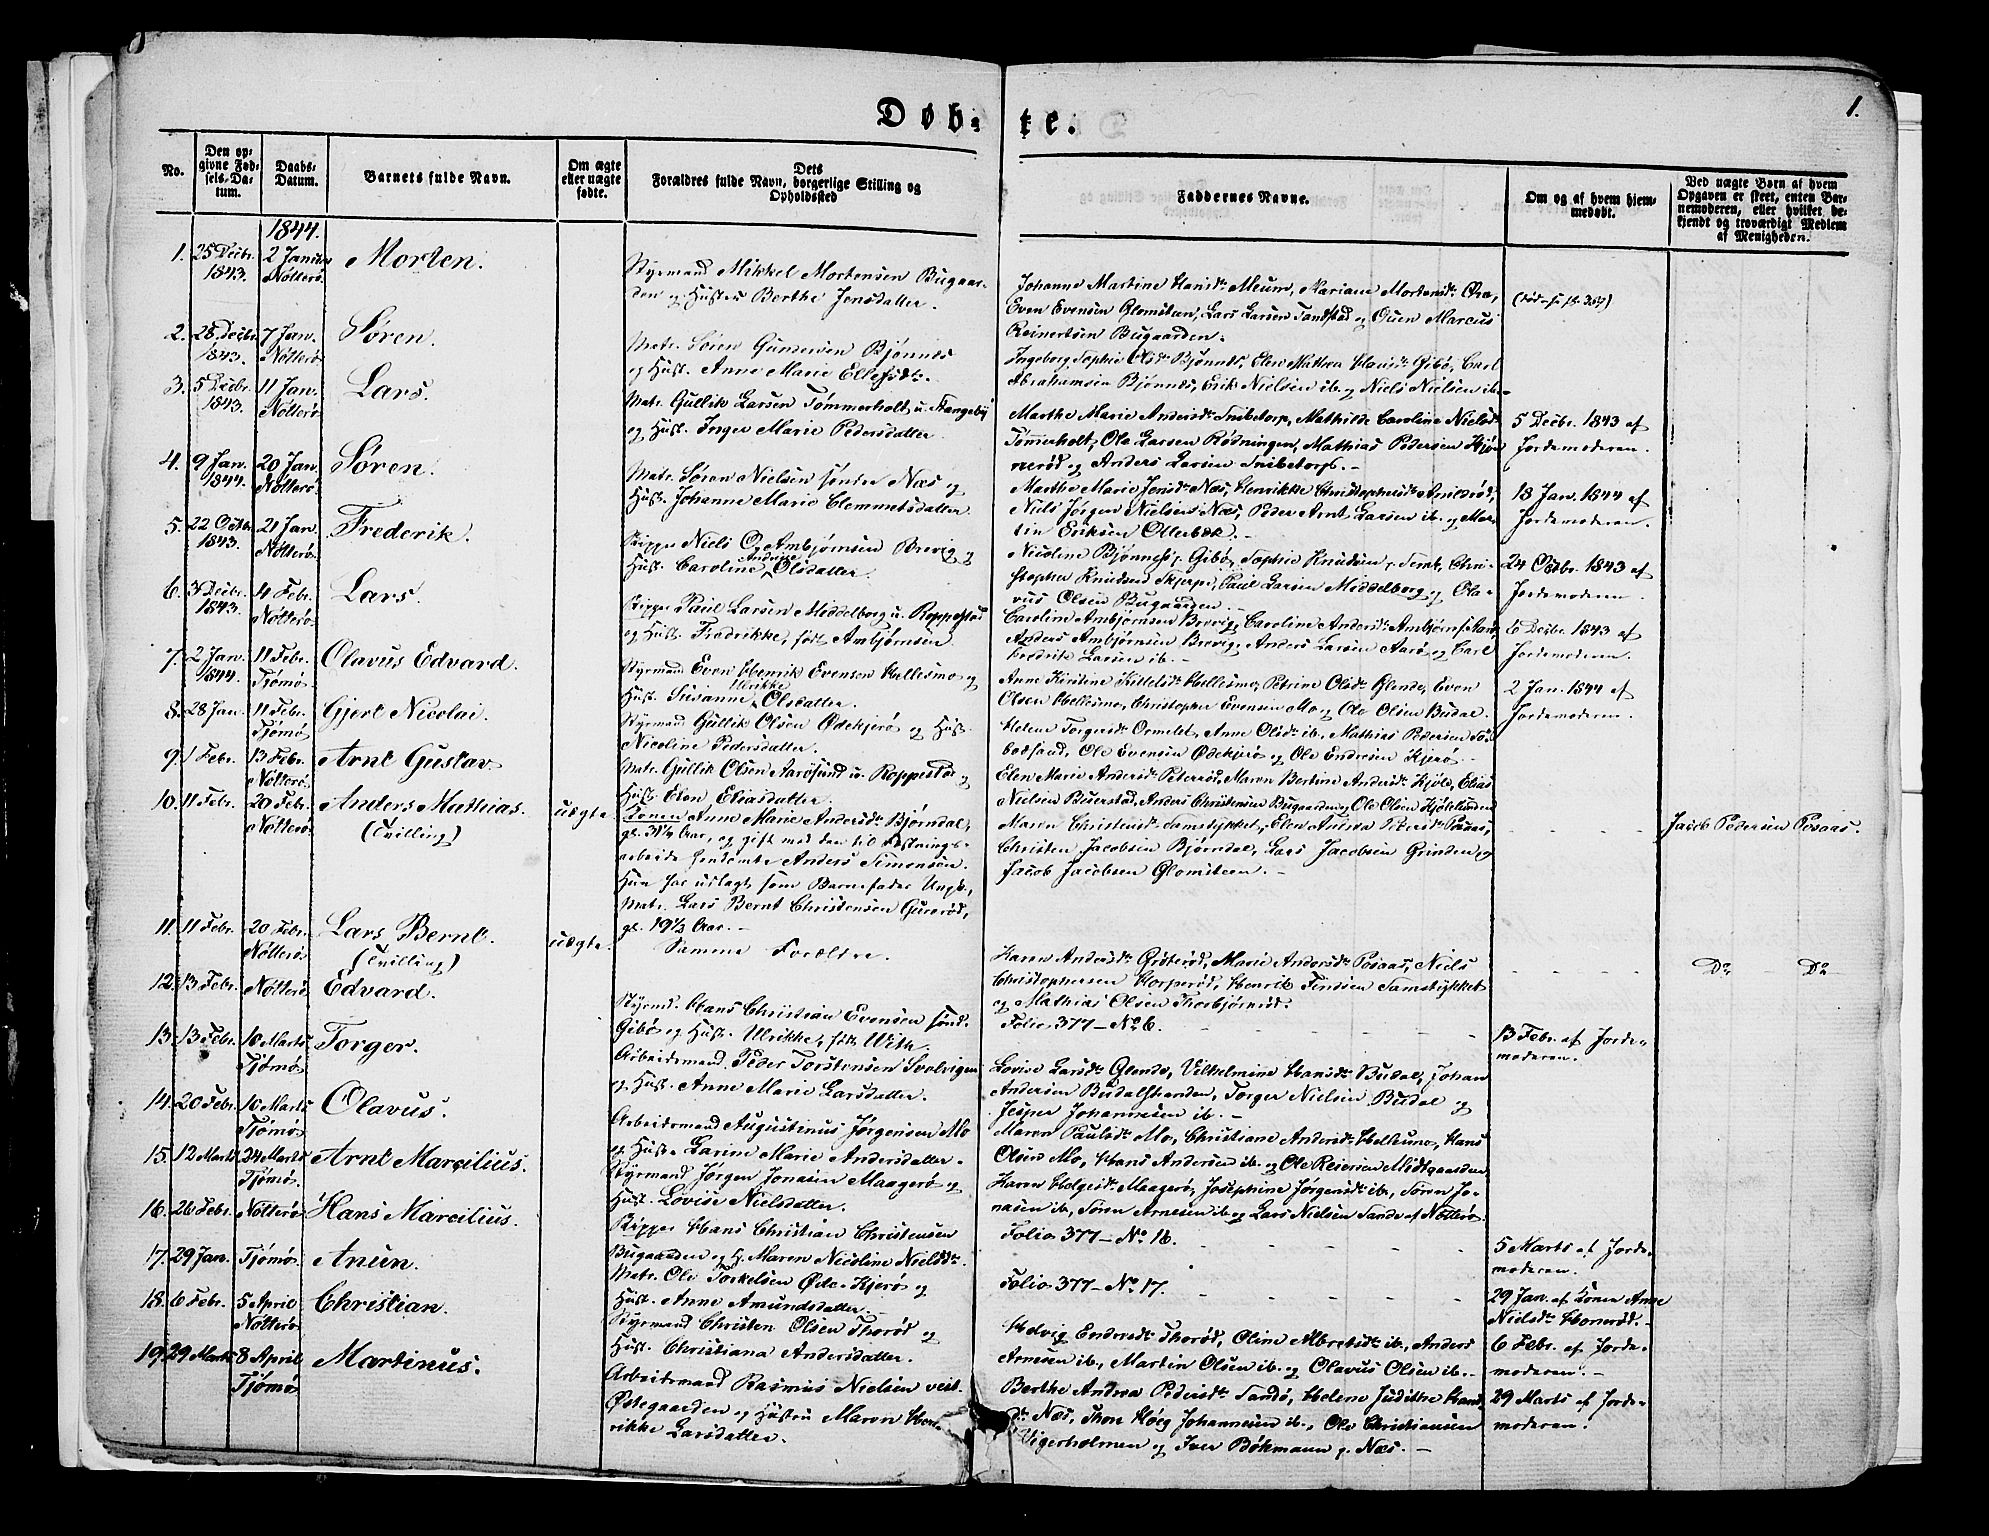 1.
Døb- te.
No.
Den op-
givne Fød-
sels-Da-
tum.
Daabs-
Datum.
Barnets fulde Navn.
Om ægte
eller uægte
fødte.
Dets
Forældres fulde Navn, borgerlige Stilling og
Opholdssted
Faddernes Navne.
Om og af hvem hjem-
medøbt.
Ved uægte Børn af hvem
Opgaven er skeet, enten Bar-
nemoderen, eller hvilket be-
kjendt og troværdigt Medlem
af Menigheden.
1844.
1. 25 Decbr. 1843. 2 Januar Nøtterø Morten.
Styrmand Mikkel Mortensen Bugaar-
den og Hustru Berthe Jensdatter.
Johanne Martine Hansdr. Meum, Mariane Mortensdr.
Even Evensen Glomsteen, Lars Larsen Tandstad og Marcus
Reinertsen Bugaarden.
2. 28 Decbr. 1843. 7 Jan. Nøtterø Søren.
Matr. Søren Gundersen Bjønnes
og Hust. Anne Marie Ellefsdtr.
Ingeborg Sophie Olsdr. Bjønnes, Elen Mathea Hansdr. Gibø, Carl
Abrahamsen Bjønnes, Erik Nielsen ib. og Niels Nielsen ib.
3. 5 Decbr. 1843. 11 Jan. Nøtterø Lars.
Matr. Gullik Larsen Tømmerholt, u. Stangeby
og Hust. Inger Marie Pedersdatter.
Marthe Marie Andersdr. Snibetorp, Mathilde Caroline Nielsdr.
Tømerholt, Ole Larsen Rødningen, Mathias Pedersen Hjøn-
nerød og Anders Larsen Snibetorp. -
5 Decbr. 1843 af
Jordemoderen.
4. 9 Jan. 1844. 20 Jan. Nøtterø Søren.
Matr. Søren Nielsen søndre Næs og
Hust. Johanne Marie Clemmetsdatter.
Marthe Marie Jensdr. Næs, Henrikke Christophersdr.
Niels Jørgen Nielsen Næs, Peder Arnt Larsen ib. og Mar-
tin Eriksen Ollerbæk. -
18 Jan. 1844 af
Jordemoderen.
5. 22 Octbr. 1843. 21 Jan. Nøtterø Frederik.
Skipper Niels O. Ambjørnsen Brevig og
Hust. Caroline Andrine Olsdatter.
Nicoline Bjønnes, Gibø, Sophie Knudsen, Chri-
stopher Knudsen Skjerpe, Paul Larsen Middelborg og Ola-
vus Olsen Bugaarden. -
24 Octbr. 1843 af
Jordemoderen.
6. 3 Decbr. 1843. 4 Febr. Nøtterø Lars.
Skipper Paul Larsen Middelborg u. Roppestad
og Hust. Fredrikke, født Ambjørnsen.
Caroline Ambjørnsen Brevig, Caroline Andersdr.
Anders Ambjørnsen Brevig, Anders Larsen Aarø og Carl
Fredrik Larsen ib. -
6 Decbr. 1843 af
Jordemoderen.
7. 2 Jan. 1844. 11 Febr. Tjømø Olavus Edvard.
Styrmand Even Henrik Evensen Hellesmo og
Hust. Susanne Ulrikke Olsdatter.
Anne Kirstine Kittelsdr. Hellesmo, Petrine Olsdr. Glende, Even
Olsen Hellesmo, Christopher Evensen Mo og Ole Olsen Budal.
2 Jan. 1844 af
Jordemoderen.
8. 28 Jan. 11 Febr. Tjømø Gjert Nicolai.
Styrmand Gullik Olsen Ødekjerø og Hust.
Nicoline Pedersdatter.
Helene Torgersdr. Ormelet, Anne Olsdr. ib. Mathias Pedersen
Ole Evensen Ødekjerø og Ole Endresen Kjerø.
9. 1 Febr. 13 Febr. Nøtterø Arnt Gustav.
Matr. Gullik Olsen Aarøsund u. Roppestad og
Hust. Elen Eliasdatter.
Elen Marie Andersdr. Petersrød, Maren Bertine Andersdr. Kjøle, Elias
Nielsen Buerstad, Anders Christensen Bugaarden og Ole Olsen
10. 11 Febr. 20 Febr. Nøtterø Anders Mathias.
(Tvilling)
uægte
Konen Anne Marie Andersdr. Bjørndal,
gl. Aar, og gift med den til Fæstnings-
arbeide hendømte Anders Simonsen.
Hun har udlagt som Barnefader Ungk.
Matr. Lars Bernt Christensen Gurerød,
gl. 19½ Aar. -
Maren Christensdr. Samstykket, Elen Andrea Pedersdr. Posaas,
Christen Jacobsen Bjørndal, Lars Jacobsen Grinden og
Jacob Jacobsen Glomsteen. -
Jacob Pedersen Posaas.
11. 11 Febr. 20 Febr. Nøtterø Lars Bernt.
(Tvilling)
uægte.
Samme Forældre.
Karen Andersdr. Marie Andersdr. Posaas, Niels
Christophersen Torperød, Henrik Finsen Samstykket
og Mathias Olsen Thorbjørnrød.
Do - Do
12. 13 Febr. Nøtterø Edvard.
Styrmd. Hans Christian Evensen sønd.
Gibø og Hust. Ulrikke, født With.
Folio 377 - No 6.
13 Febr. af Jorde-
moderen.
13. 13 Febr. 10 Marts Tjømø Torger.
Arbeidsmand Peder Torstensen Svolvigen
og Hust. Anne Marie Larsdatter.
Lovise Larsdr. Glende, Vilhelmine Hansdr. Budal, Johan
Andersen Budalstranden, Torger Nielsen Budal og
Jesper Johannesen ib. -
14. 20 Febr. 10 Marts Tjømø Olavus.
Arbeidsmand Augustinus Jørgensen Mo
og Hust. Larine Marie Andersdatter.
Maren Paulsdr. Mo, Christiane Andersdr. Hans
Olsen Mo, Hans Andersen ib. og Ole Reiersen Midtgaarden
15. 12 Marts 24 Marts Tjømø Arnt Marcilius.
Styrmand Jørgen Jonasen Maagerø og
Hust. Lovise Nielsdatter.
Karen Holgersdr. Maagerø, Josephine Jørgensdr. ib., Søren Jo-
nasen ib., Søren Arnesen ib. og Lars Nielsen Sande af Nøtterø.
16. 26 Febr. Nøtterø Hans Marcilius.
Skipper Hans Christian Christensen
Bugaarden og H. Maren Nicoline Nielsdr.
Folio 377 - No 16.
5 Marts af Jorde-
moderen.
17. 29 Jan. Tjømø Anun.
Matr. Ole Torkelsen Øde-Kjerø og
Hust. Anne Amundsdatter.
Folio 377 - No 17.
29 Jan. af Konen Anne
Nielsdr. Honerød.
18. 6 Febr. 5 April Nøtterø Christian.
Styrmand Christen Olsen Thorød og
Hust. Christiana Andersdatter.
Hedvig Endresdr. Thorød, Oline Albretsdr. ib., Anders
Arnesen ib., Martin Olsen ib. og Olavus Olsen ib. -
6 Febr. af Jorde-
moderen. -
19. 29 Marts 8 April Tjømø Martinus.
Arbeidsmand Rasmus Nielsen vest.
Østegaarden og Hustru Maren Hen-
rikke Larsdatter.
Berthe Andrea Pedersdr. Sandø, Helene Judithe Hans-
dr. Næs, Thon Høeg Johannesen ib., Ole Christiansen
Vigerholmen og Iver Bøkmann p. Næs. -
29 Marts af Jorde-
moderen.